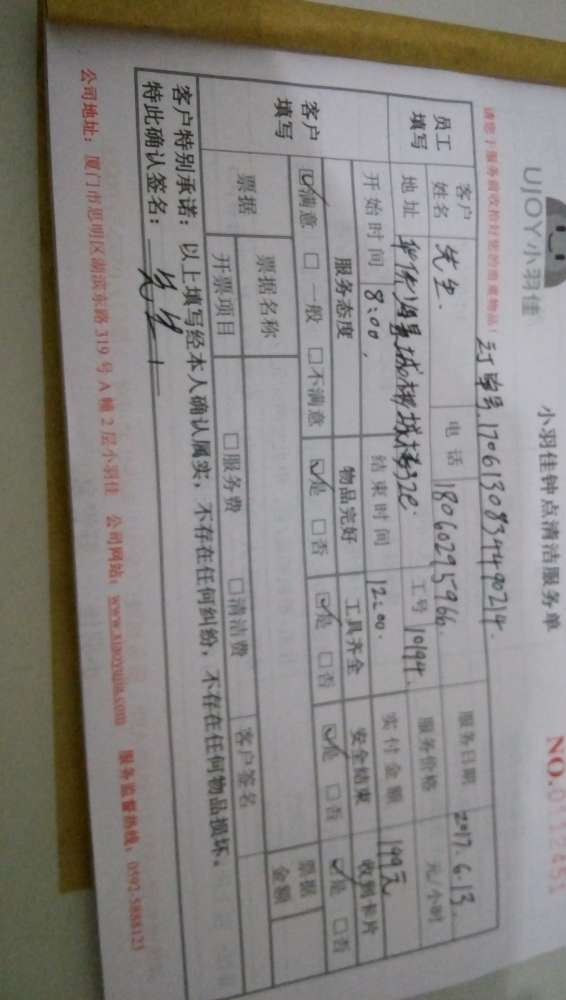 UJOY小羽佳
小羽佳钟点清洁服务单
NO.0112451
请您于服务前收拾好您的贵重物品！
订单号.1706130834490214.
员工填写
客户姓名 先生. 电话 18060295966. 服务日期 2017.6.13.
地址 海景城 32C. 工号 10194. 服务价格 元/小时
开始时间 8:00, 结束时间 12:00. 实付金额 144元
客户填写
服务态度 物品完好 工具齐全 安全结束 收到卡片
☑满意 □一般 □不满意 ☑是 □否 ☑是 □否 ☑是 □否 ☑是 □否
票据 票据名称 客户签名 票据金额
开票项目 □服务费 □清洁费
客户特别承诺：以上填写经本人确认属实，不存在任何纠纷，不存在任何物品损坏。
特此确认签名：
公司地址：厦门市思明区湖滨东路319号A幢2层小羽佳 公司网站：www.xiaoyujia.com 服务监督热线：0592-5888123